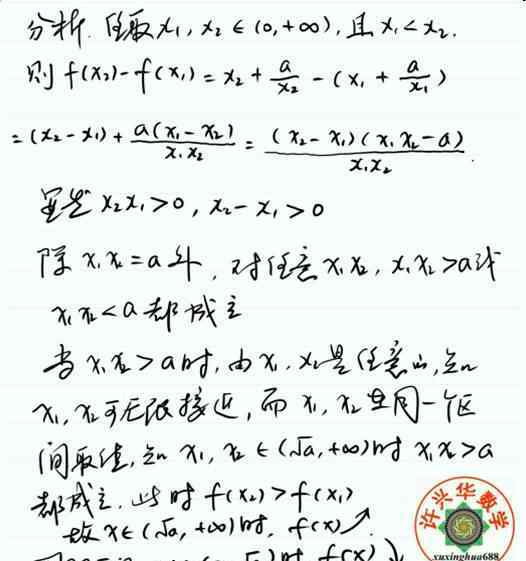 分析. 任取 x₁, x₂ ∈ (0, +∞), 且 x₁ < x₂.
则 f(x₂) - f(x₁) = x₂ + a/x₂ - (x₁ + a/x₁)
= (x₂ - x₁) + a(x₁ - x₂)/x₁x₂ = (x₂ - x₁)(x₁x₂ - a)/x₁x₂.
显然 x₂x₁ > 0, x₂ - x₁ > 0
除 x₁x₂ = a 外, 对任意 x₁x₂, x₁x₂ > a 或
x₁x₂ < a 都成立
当 x₁x₂ > a 时, 由 x₁, x₂ 是任意的, 知
x₁, x₂ 可无限接近, 而 x₁, x₂ 在同一个区
间取值, 知 x₁, x₂ ∈ (√a, +∞) 时 x₁x₂ > a
都成立. 此时 f(x₂) > f(x₁)
故 x ∈ (√a, +∞) 时, f(x) ↗
时 f(x) ↘
许兴华数学
xuxinghua688